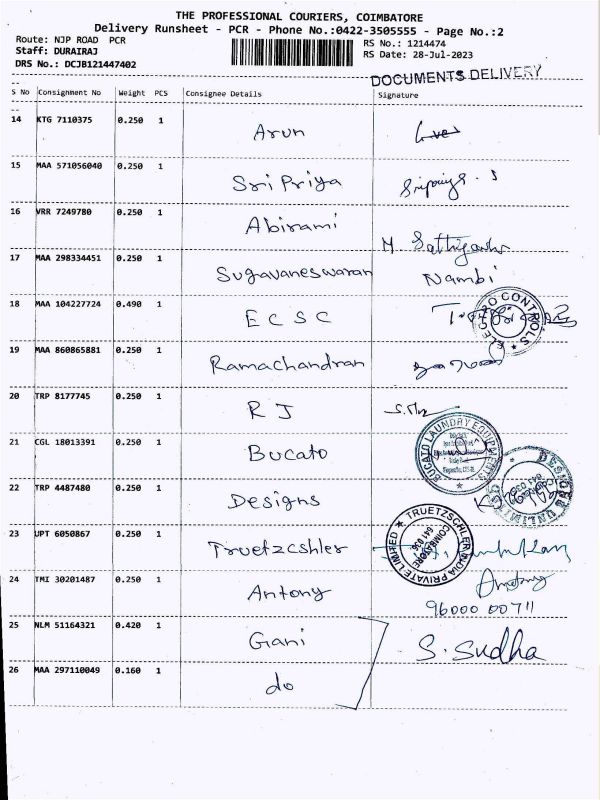 THE PROFESSIONAL COURIERS, COIMBATORE
Delivery Runsheet - PCR - Phone No.:0422-3505555 - Page No.:2
Route: NJP ROAD PCR RS No.: 1214474
Staff: DURAIRAJ RS Date: 28-Jul-2023
DRS No.: DCJB121447402
DOCUMENTS DELIVERY
S No Consignment No Weight PCS Consignee Details Signature
14 KTG 7110375 0.250 1 Arun
15 MAA 571056040 0.250 1 Sri Priya Sripriya. S
16 VRR 7249780 0.250 1 Abirami
17 MAA 298334451 0.250 1 Sugavaneswaran Nambi
18 MAA 104227724 0.490 1 E C S C
ELECTRO CONTROLS
19 MAA 860865881 0.250 1 Ramachandran
20 TRP 8177745 0.250 1 R J
21 CGL 18013391 0.250 1 Bucato
BUCATO LAUNDRY EQUIPMENTS
22 TRP 4487480 0.250 1 Designs
DESIGNS UNLIMITED
23 UPT 6050867 0.250 1 Truetzcshler
TRUETZSCHLER INDIA PRIVATE LIMITED
COIMBATORE
641 036
24 TMI 30201487 0.250 1 Antony Antony
96000 00711
25 NLM 51164321 0.420 1 Gani S. Sudha
26 MAA 297110049 0.160 1 do